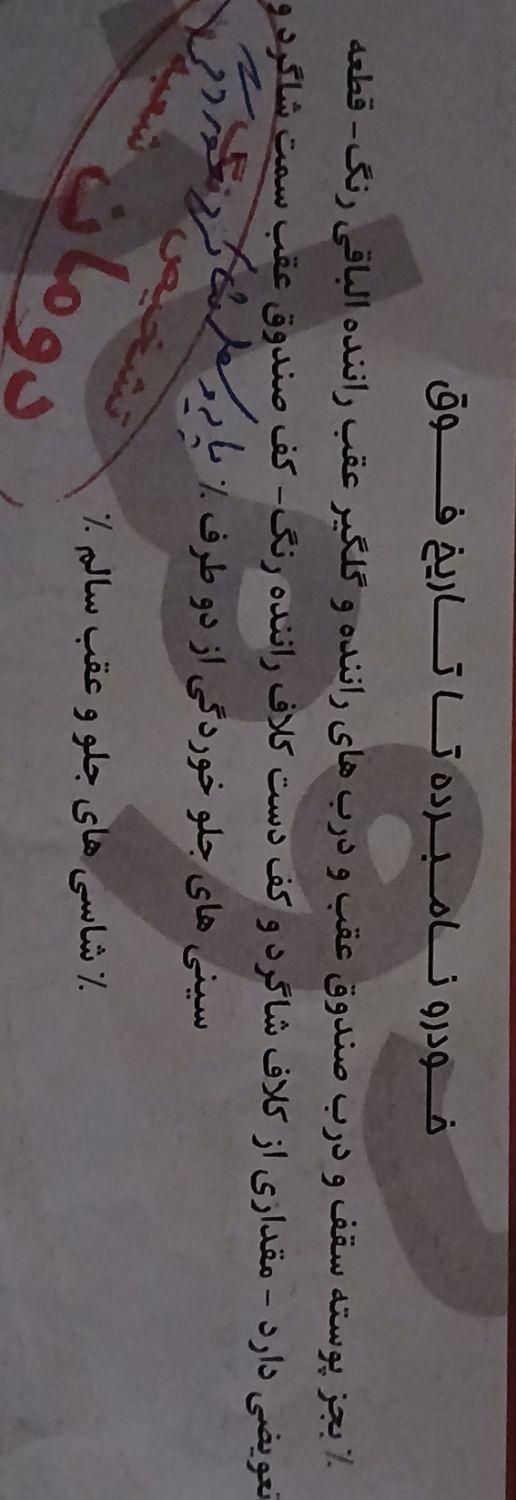 خودرو نامبرده تا تاریخ فوق
٪ بجز پوسته سقف و درب صندوق عقب و درب های راننده و گلگیر عقب راننده الباقی رنگ - قطعه
تعویضی دارد - مقداری از کلاف شاگرد و کف دست کلاف راننده رنگ - کف صندوق عقب سمت شاگرد و
سینی های جلو خوردگی از دو طرف ٪
٪ شاسی های جلو و عقب سالم ٪
تشخیص
دومان